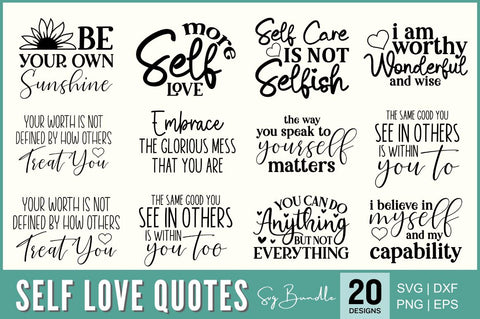 BE
YOUR OWN
Sunshine
more
Self
LOVE
Self Care
IS NOT
Selfish
i am
worthy
Wonderful
and wise
YOUR WORTH IS NOT
DEFINED BY HOW OTHERS
Treat You
Embrace
THE GLORIOUS MESS
THAT YOU ARE
the way
you speak to
yourself
matters
THE SAME GOOD YOU
SEE IN OTHERS
IS WITHIN
you to
YOUR WORTH IS NOT
DEFINED BY HOW OTHERS
Treat You
THE SAME GOOD YOU
SEE IN OTHERS
IS WITHIN
you too
YOU CAN DO
Anything
BUT NOT
EVERYTHING
i believe in
myself
and my
capability
SELF LOVE QUOTES
Svg Bundle
20
DESIGNS
SVG | DXF
PNG | EPS